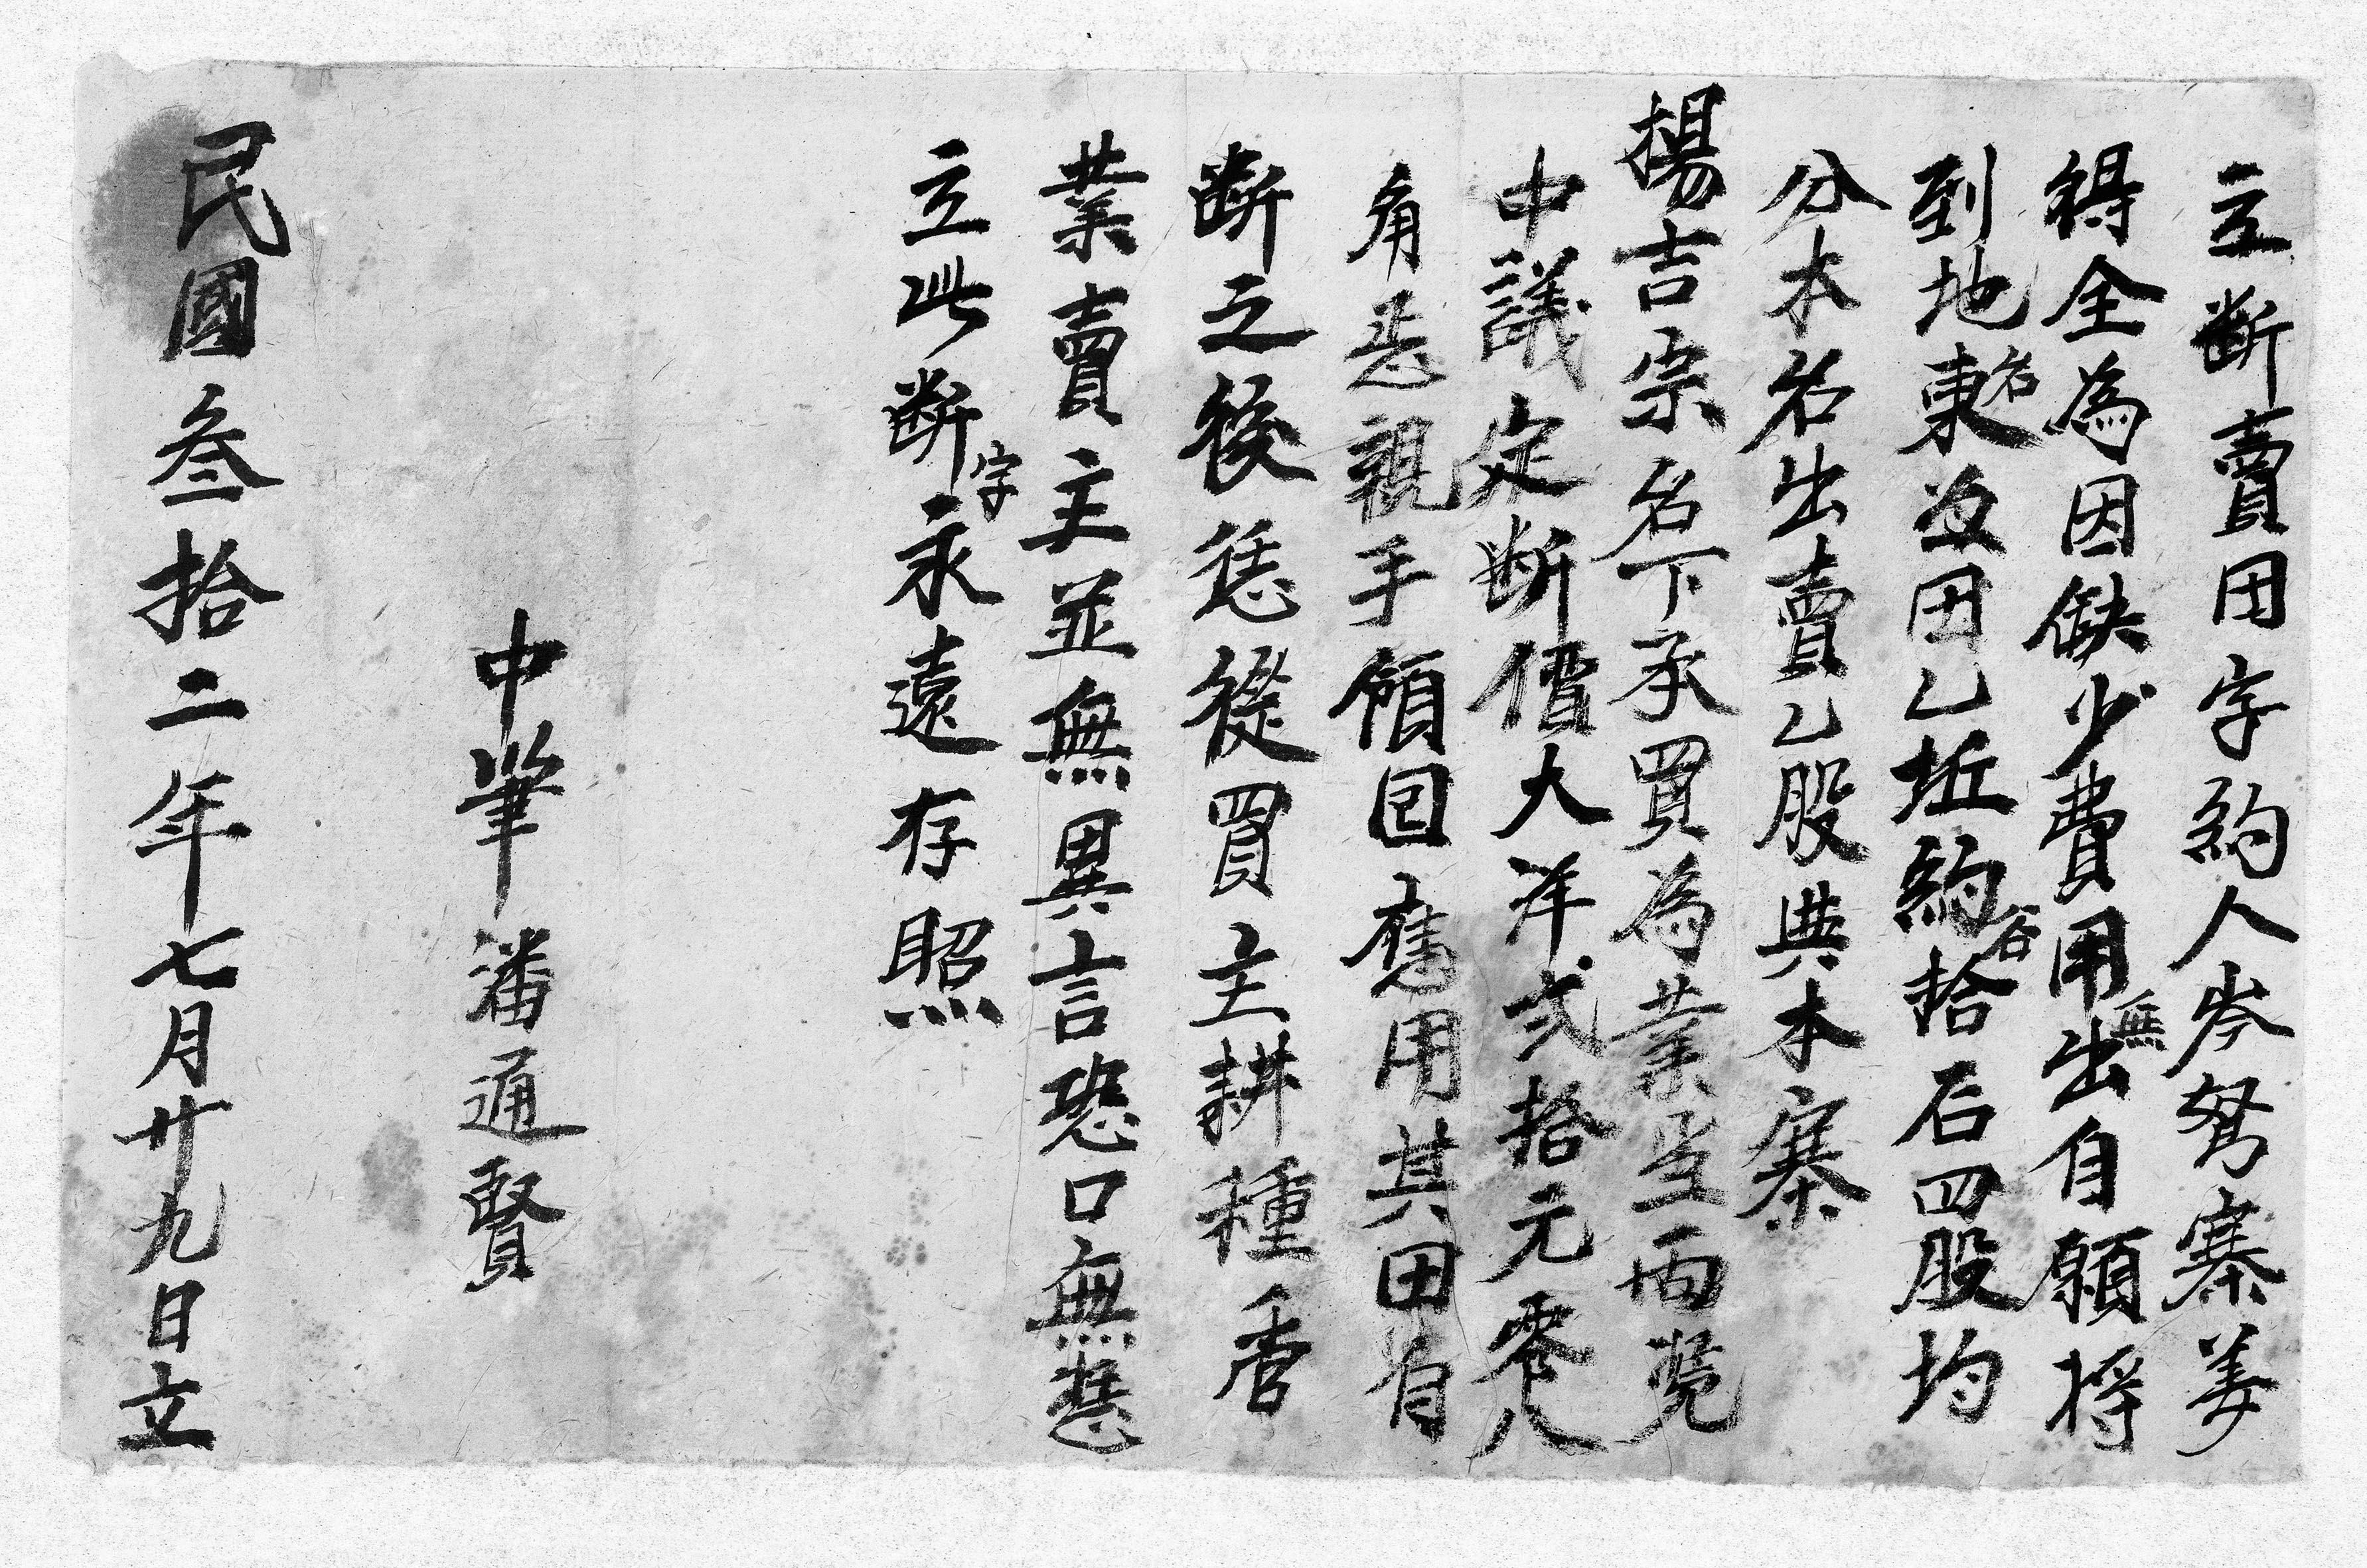 立斷賣田字約人岑努寨姜
得全為因缺少費用無出自願將
到地名東及田乙坵約谷拾石四股均
分本名出賣乙股典本寨
楊吉宗名下承買為業当面凴
中議定斷價大洋弍拾元零八
角恁親手領囬應用其田自
斷之後恁從買主耕種管
業賣主並無異言恐口無憑
立此斷字永遠存照
中筆潘通賢
民國叁拾二年七月廿九日立